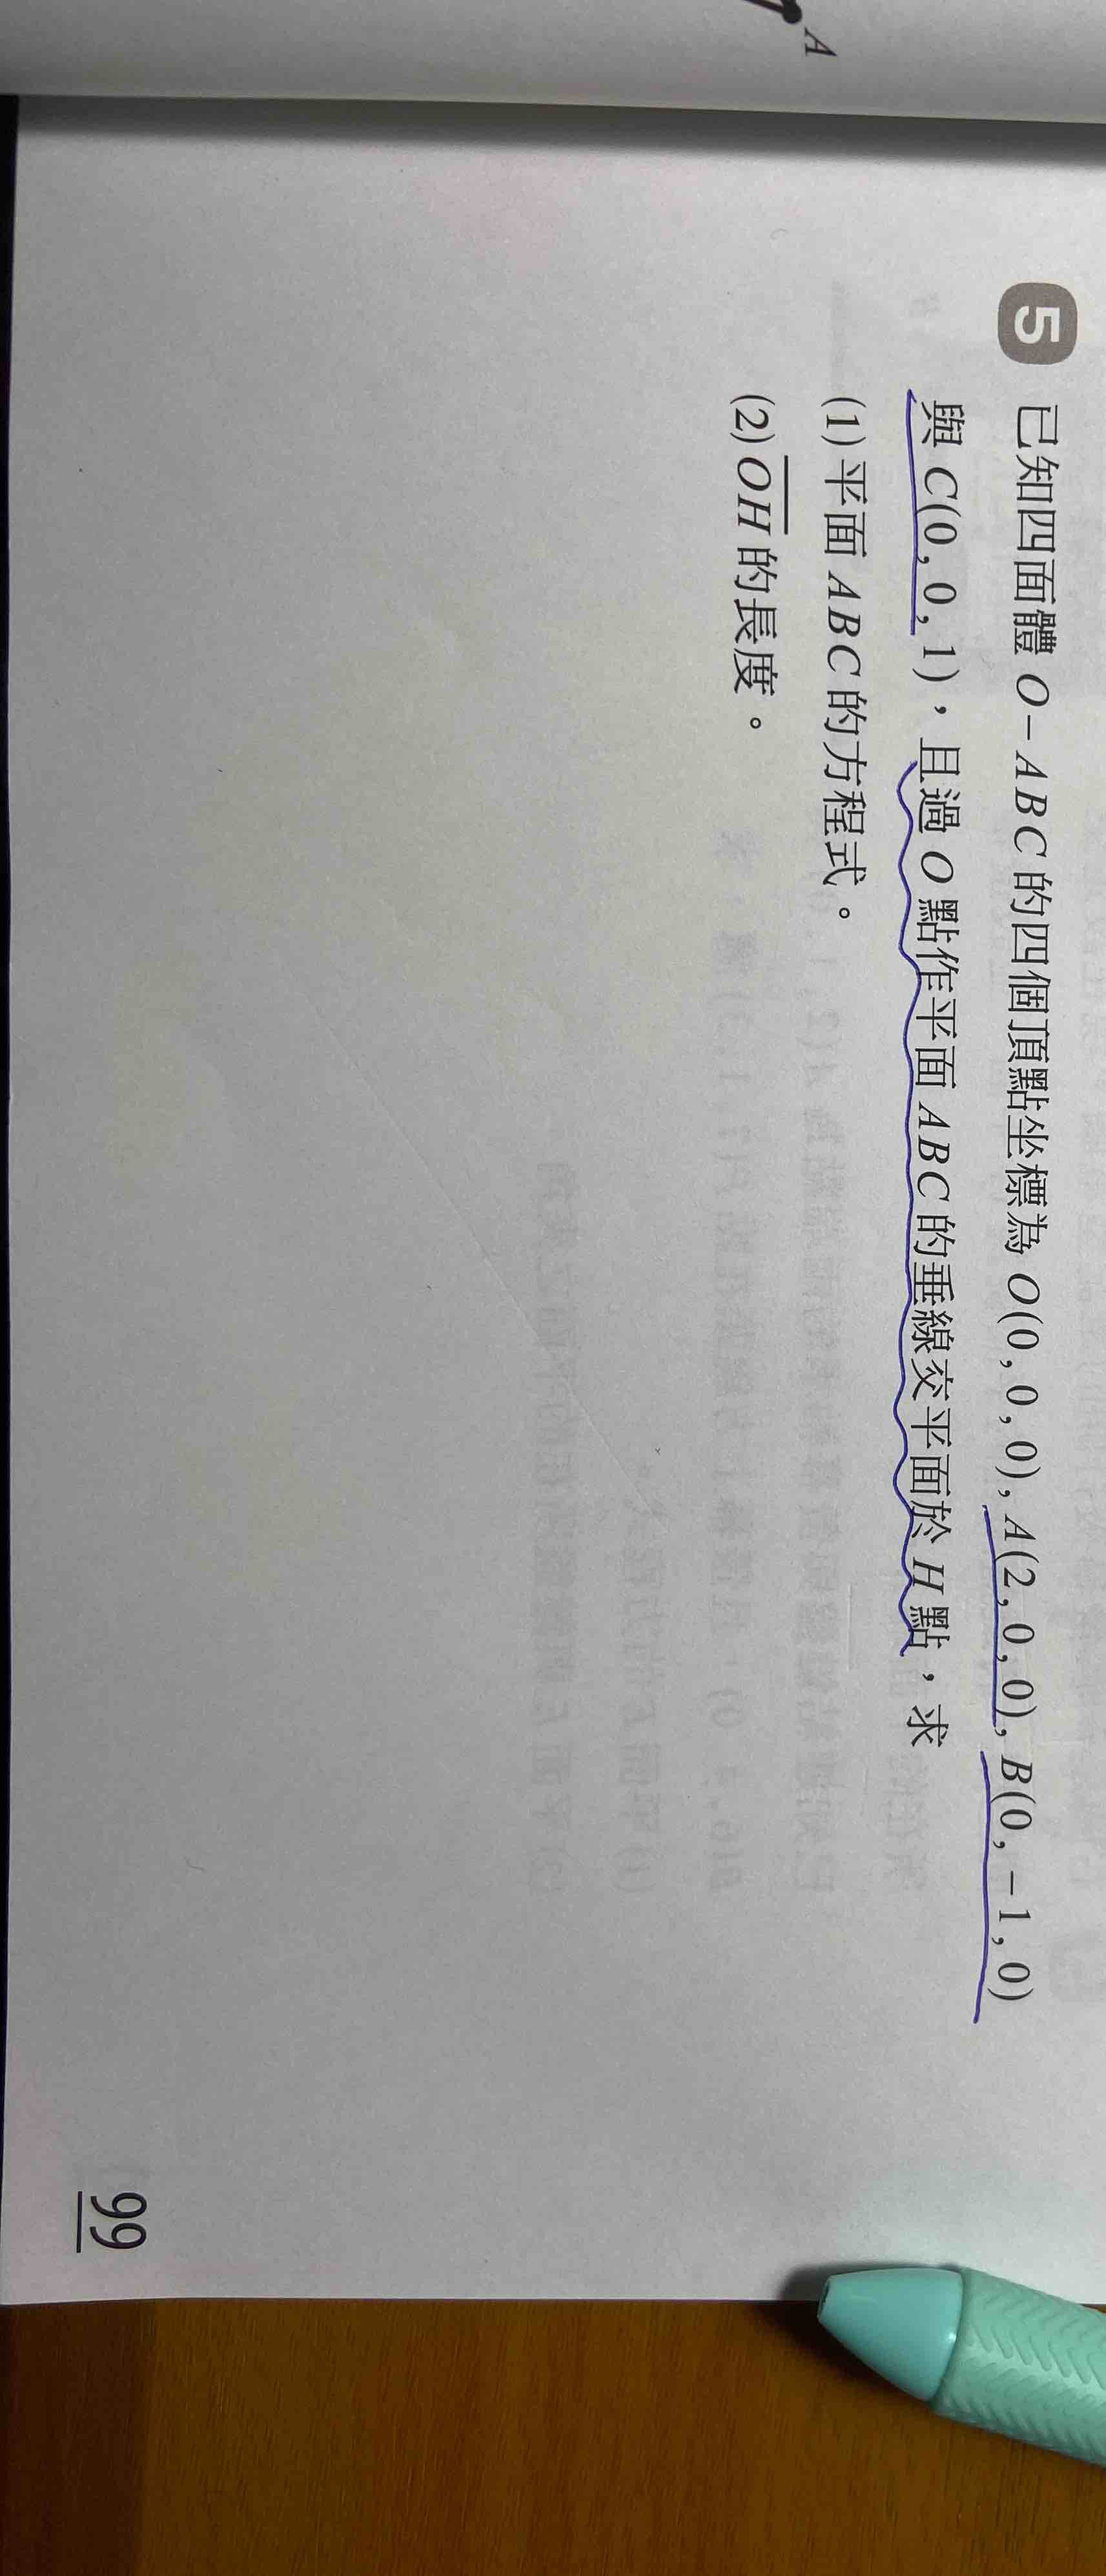 A
5 已知四面體 O-ABC 的四個頂點坐標為 O(0, 0, 0), A(2, 0, 0), B(0, -1, 0)
與 C(0, 0, 1),且過 O 點作平面 ABC 的垂線交平面於 H 點,求
(1) 平面 ABC 的方程式。
(2) \overline{OH} 的長度。
99